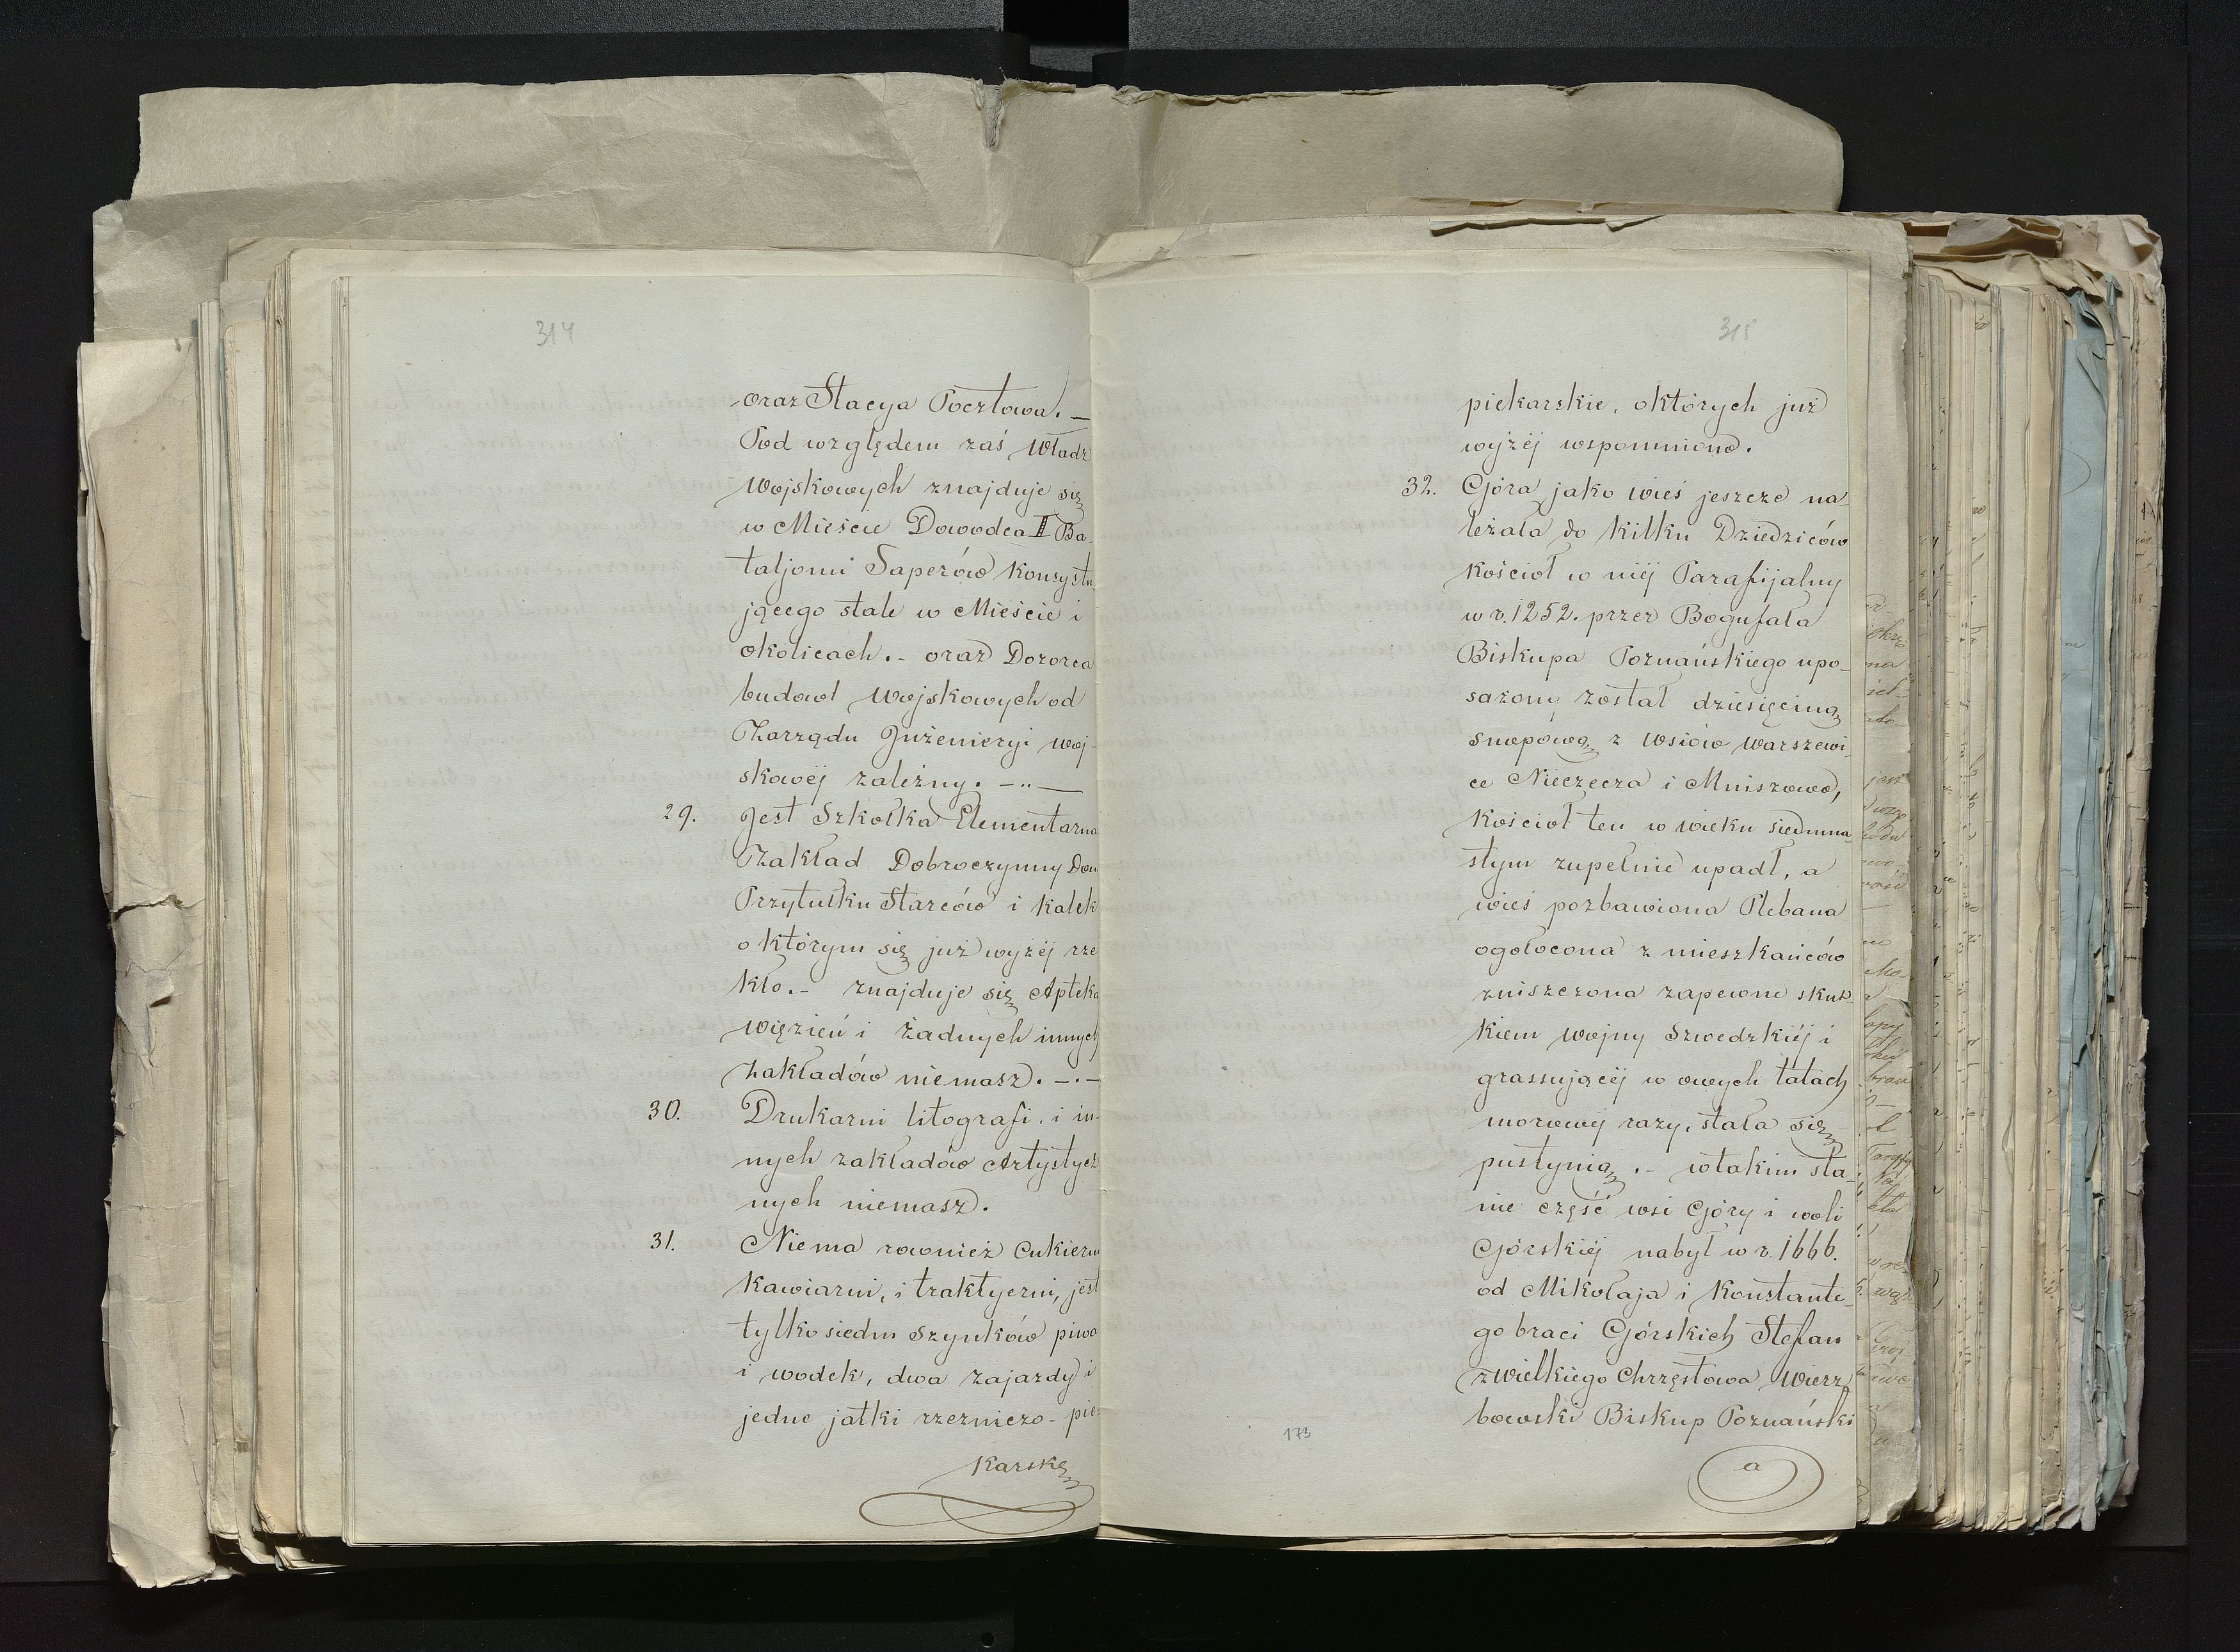 314
oraz Stacya Pocztowa. —
Pod względem zaś Władz
Wojskowych znajduje się
w Mieście Dowodca II Ba-
taljonu Saperów konsystu
jącego stale w Mieście i
okolicach. - oraz Dozorca
budowl Wojskowych od
Zarządu Inżenieryi woj-
skowėj zależny. — „ —
29. Jest Szkołka Elementarna
Zakład Dobroczynny Dom
Przytułku Starców i kalek
o którym się już wyżėj rze
kło. - znajduje się Apteka
więzień i żadnych innych
zakładów niemasz. — . —
30. Drukarni litografi. i in-
nych zakładów Artystycz
nych niemasz.
31. Niema rownież Cukiern
kawiarni, i traktyerni, jest
tylko siedm szynków piwa
i wodek, dwa zajazdy i
jedne jatki rzezniczo - pie-
karskę
315
piekarskie, októrych już
wyżėj wspomniono.
32. Góra jako wieś jeszcze na-
leżała do kilku Dziedziców
kościoł w niėj Parafijalny
w r. 1252. przez Bogufała
Biskupa Poznańskiego upo-
sażony został dziesięciną
snopową z wsiów Warszewi-
ce Nieczecza i Mniszowo,
kościoł ten w wieku siedmna
stym zupełnie upadł, a
wieś pozbawiona Plebana
ogołocona z mieszkańców
zniszczona zapewne skut-
kiem wojny Szwedzkiėj i
grassującėj w owych latach
morowėj zazy, stała się
pustynią. - wtakim sta-
nie część wsi Góry i woli
Górskiėj nabył w r. 1666.
od Mikołaja i Konstante-
go braci Górskich Stefan
zwielkiego Chrząstowa Wierz
bowski Biskup Poznański
a
173